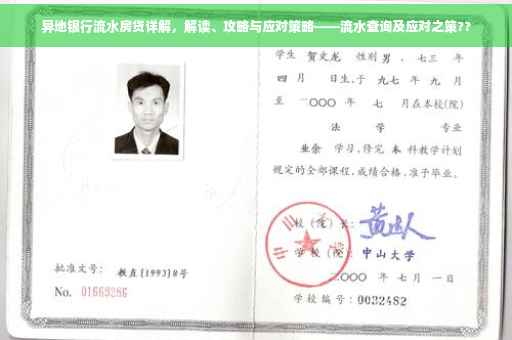 异地银行流水房贷详解，解读、攻略与应对策略——流水查询及应对之策??
学生 贺文龙 性别 男，七三 年
四 月 日生，于 九七 年 九 月
至 二〇〇〇 年 七 月在本校(院)
法 学 专业
业余 学习，修完 本 科教学计划
规定的全部课程，成绩合格，准予毕业。
校（院）长：
学 校（院）： 中山大学
二〇〇〇 年 七 月 一 日
批准文号： 教直[1993]8号
No. 01669286
学校编号：0032482